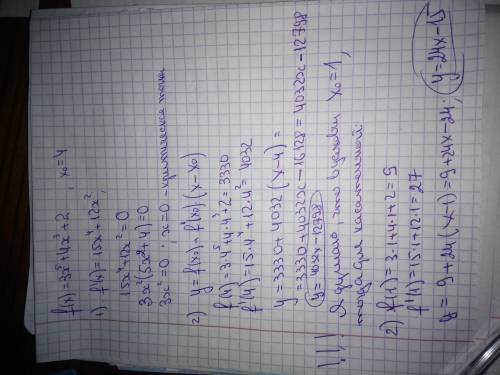 f(x) = 3x⁵+4x³+2 , x₀=4
1) f'(x) = 15x⁴+12x²,
15x⁴+12x²=0
3x²(5x²+4)=0
3x²=0 ; x=0 - критическая точка
2) y = f(x₀) + f'(x₀)(x-x₀)
f(4)=3·4⁵+4·4³+2=3330
f'(4)=15·4⁴+12·4²=4032
y = 3330+4032(x-4) =
= 3330+4032x-16128 = 4032x-12798
y=4032x-12798
!!! Я думаю, что в условии x₀=1,
тогда для касательной:
2) f(1)=3·1+4·1+2=9
f'(1)=15·1+12·1=27
y = 9+24(x-1)=9+24x-24; y=24x-15